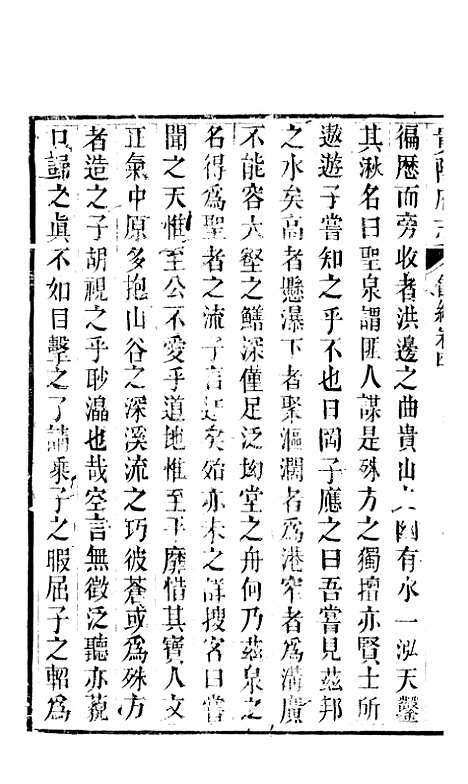 貴陽府志 餘編卷四
徧歷而旁收者洪邊之曲貴山之因有水一泓天鑿
其湫名曰聖泉謂匪人謀是殊方之獨擅亦賢士所
遨遊子嘗知之乎不也日岡子應之曰吾嘗見茲邦
之水矣高者懸瀑下者聚漚濶者爲港窄者爲溝廣
不能容大壑之鱔深僅足泛坳堂之舟何乃茲泉之
名得爲聖者之流子言過矣殆亦未之詳搜客曰嘗
聞之天惟至公不愛乎道地惟至平靡惜其寶人文
正氣中原多抱山谷之深溪流之巧彼蒼或爲殊方
者造之子胡視之乎眇溫也哉空言無徵泛聽亦藐
口歸之眞不如目擊之了請乘子之暇屈子之軺爲